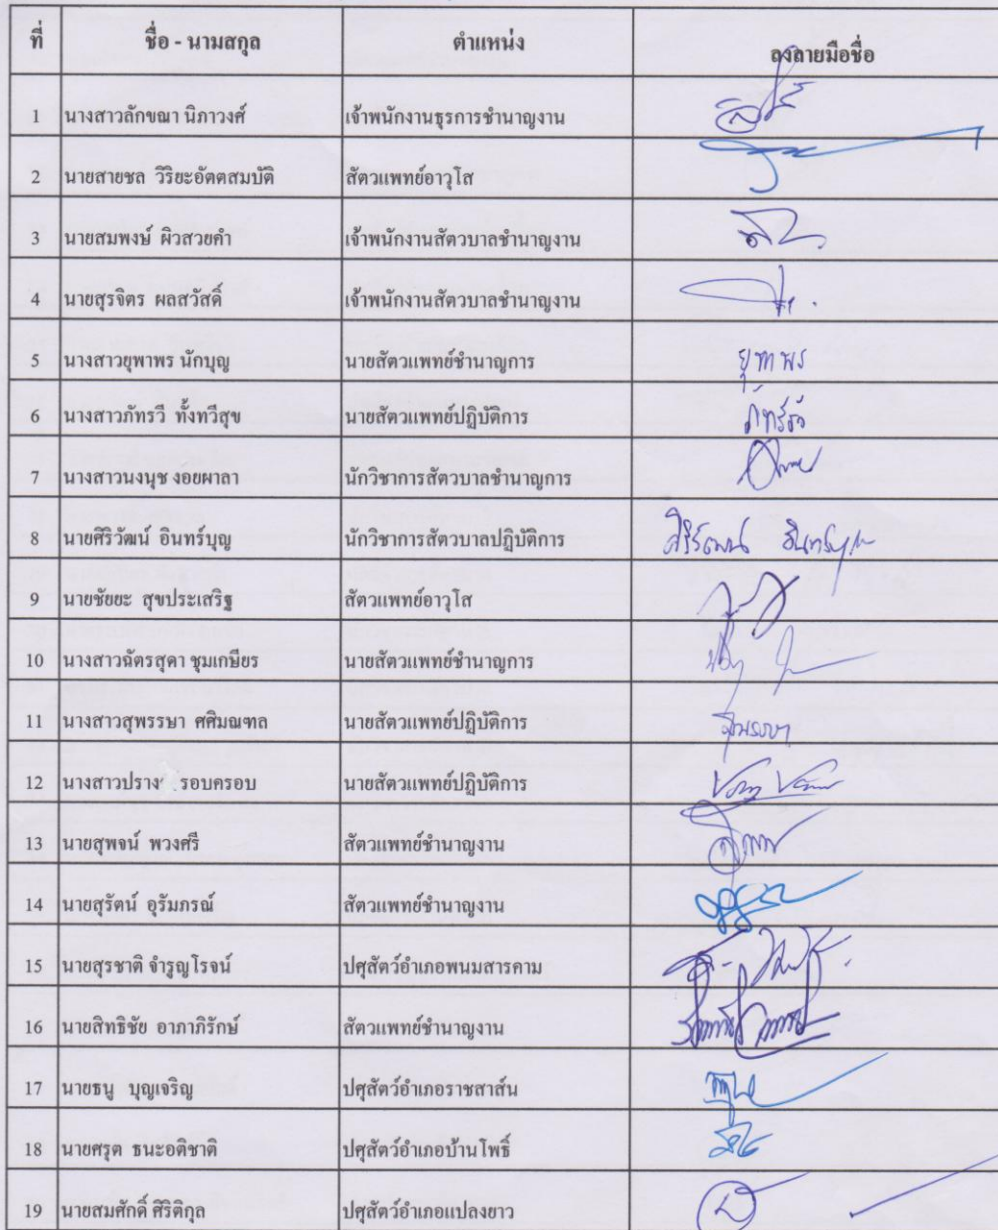 ที่ ชื่อ - นามสกุล ตำแหน่ง ลงลายมือชื่อ
1 นางสาวลักขณา นิภาวงศ์ เจ้าพนักงานธุรการชำนาญงาน
2 นายสายชล วิริยะอัตตสมบัติ สัตวแพทย์อาวุโส
3 นายสมพงษ์ ผิวสวยคำ เจ้าพนักงานสัตวบาลชำนาญงาน
4 นายสุรจิตร ผลสวัสดิ์ เจ้าพนักงานสัตวบาลชำนาญงาน
5 นางสาวยุพาพร นักบุญ นายสัตวแพทย์ชำนาญการ ยุพาพร
6 นางสาวภัทรวี ทั้งทวีสุข นายสัตวแพทย์ปฏิบัติการ
7 นางสาวนงนุช งอยผาลา นักวิชาการสัตวบาลชำนาญการ
8 นายศิริวัฒน์ อินทร์บุญ นักวิชาการสัตวบาลปฏิบัติการ ศิริวัฒน์ อินทร์บุญ
9 นายชัยยะ สุขประเสริฐ สัตวแพทย์อาวุโส
10 นางสาวฉัตรสุดา ชุมเกษียร นายสัตวแพทย์ชำนาญการ
11 นางสาวสุพรรษา ศศิมณฑล นายสัตวแพทย์ปฏิบัติการ สุพรรษา
12 นางสาวปราง รอบครอบ นายสัตวแพทย์ปฏิบัติการ
13 นายสุพจน์ พวงศรี สัตวแพทย์ชำนาญงาน
14 นายสุรัตน์ อุรัมภรณ์ สัตวแพทย์ชำนาญงาน
15 นายสุรชาติ จำรูญโรจน์ ปศุสัตว์อำเภอพนมสารคาม
16 นายสิทธิชัย อาภาภิรักษ์ สัตวแพทย์ชำนาญงาน
17 นายธนู บุญเจริญ ปศุสัตว์อำเภอราชสาส์น
18 นายศรุต ธนะอติชาติ ปศุสัตว์อำเภอบ้านโพธิ์
19 นายสมศักดิ์ ศิริติกุล ปศุสัตว์อำเภอแปลงยาว